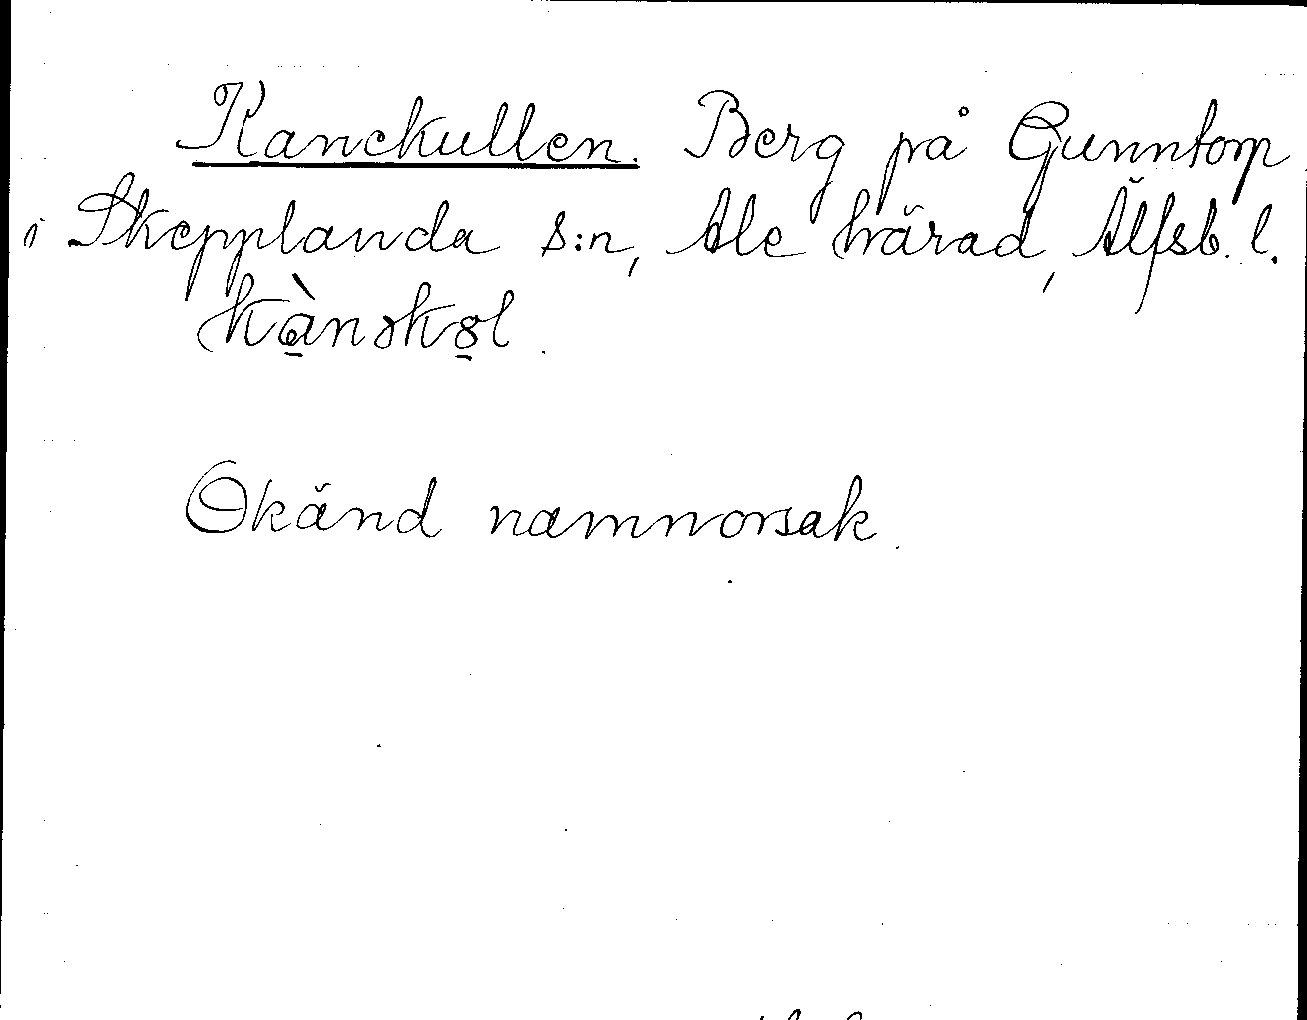 Kanekullen. Berg på Gunntorp
i Skepplanda s:n, Ale härad, Älfsb. l.
Okänd namnorsak.